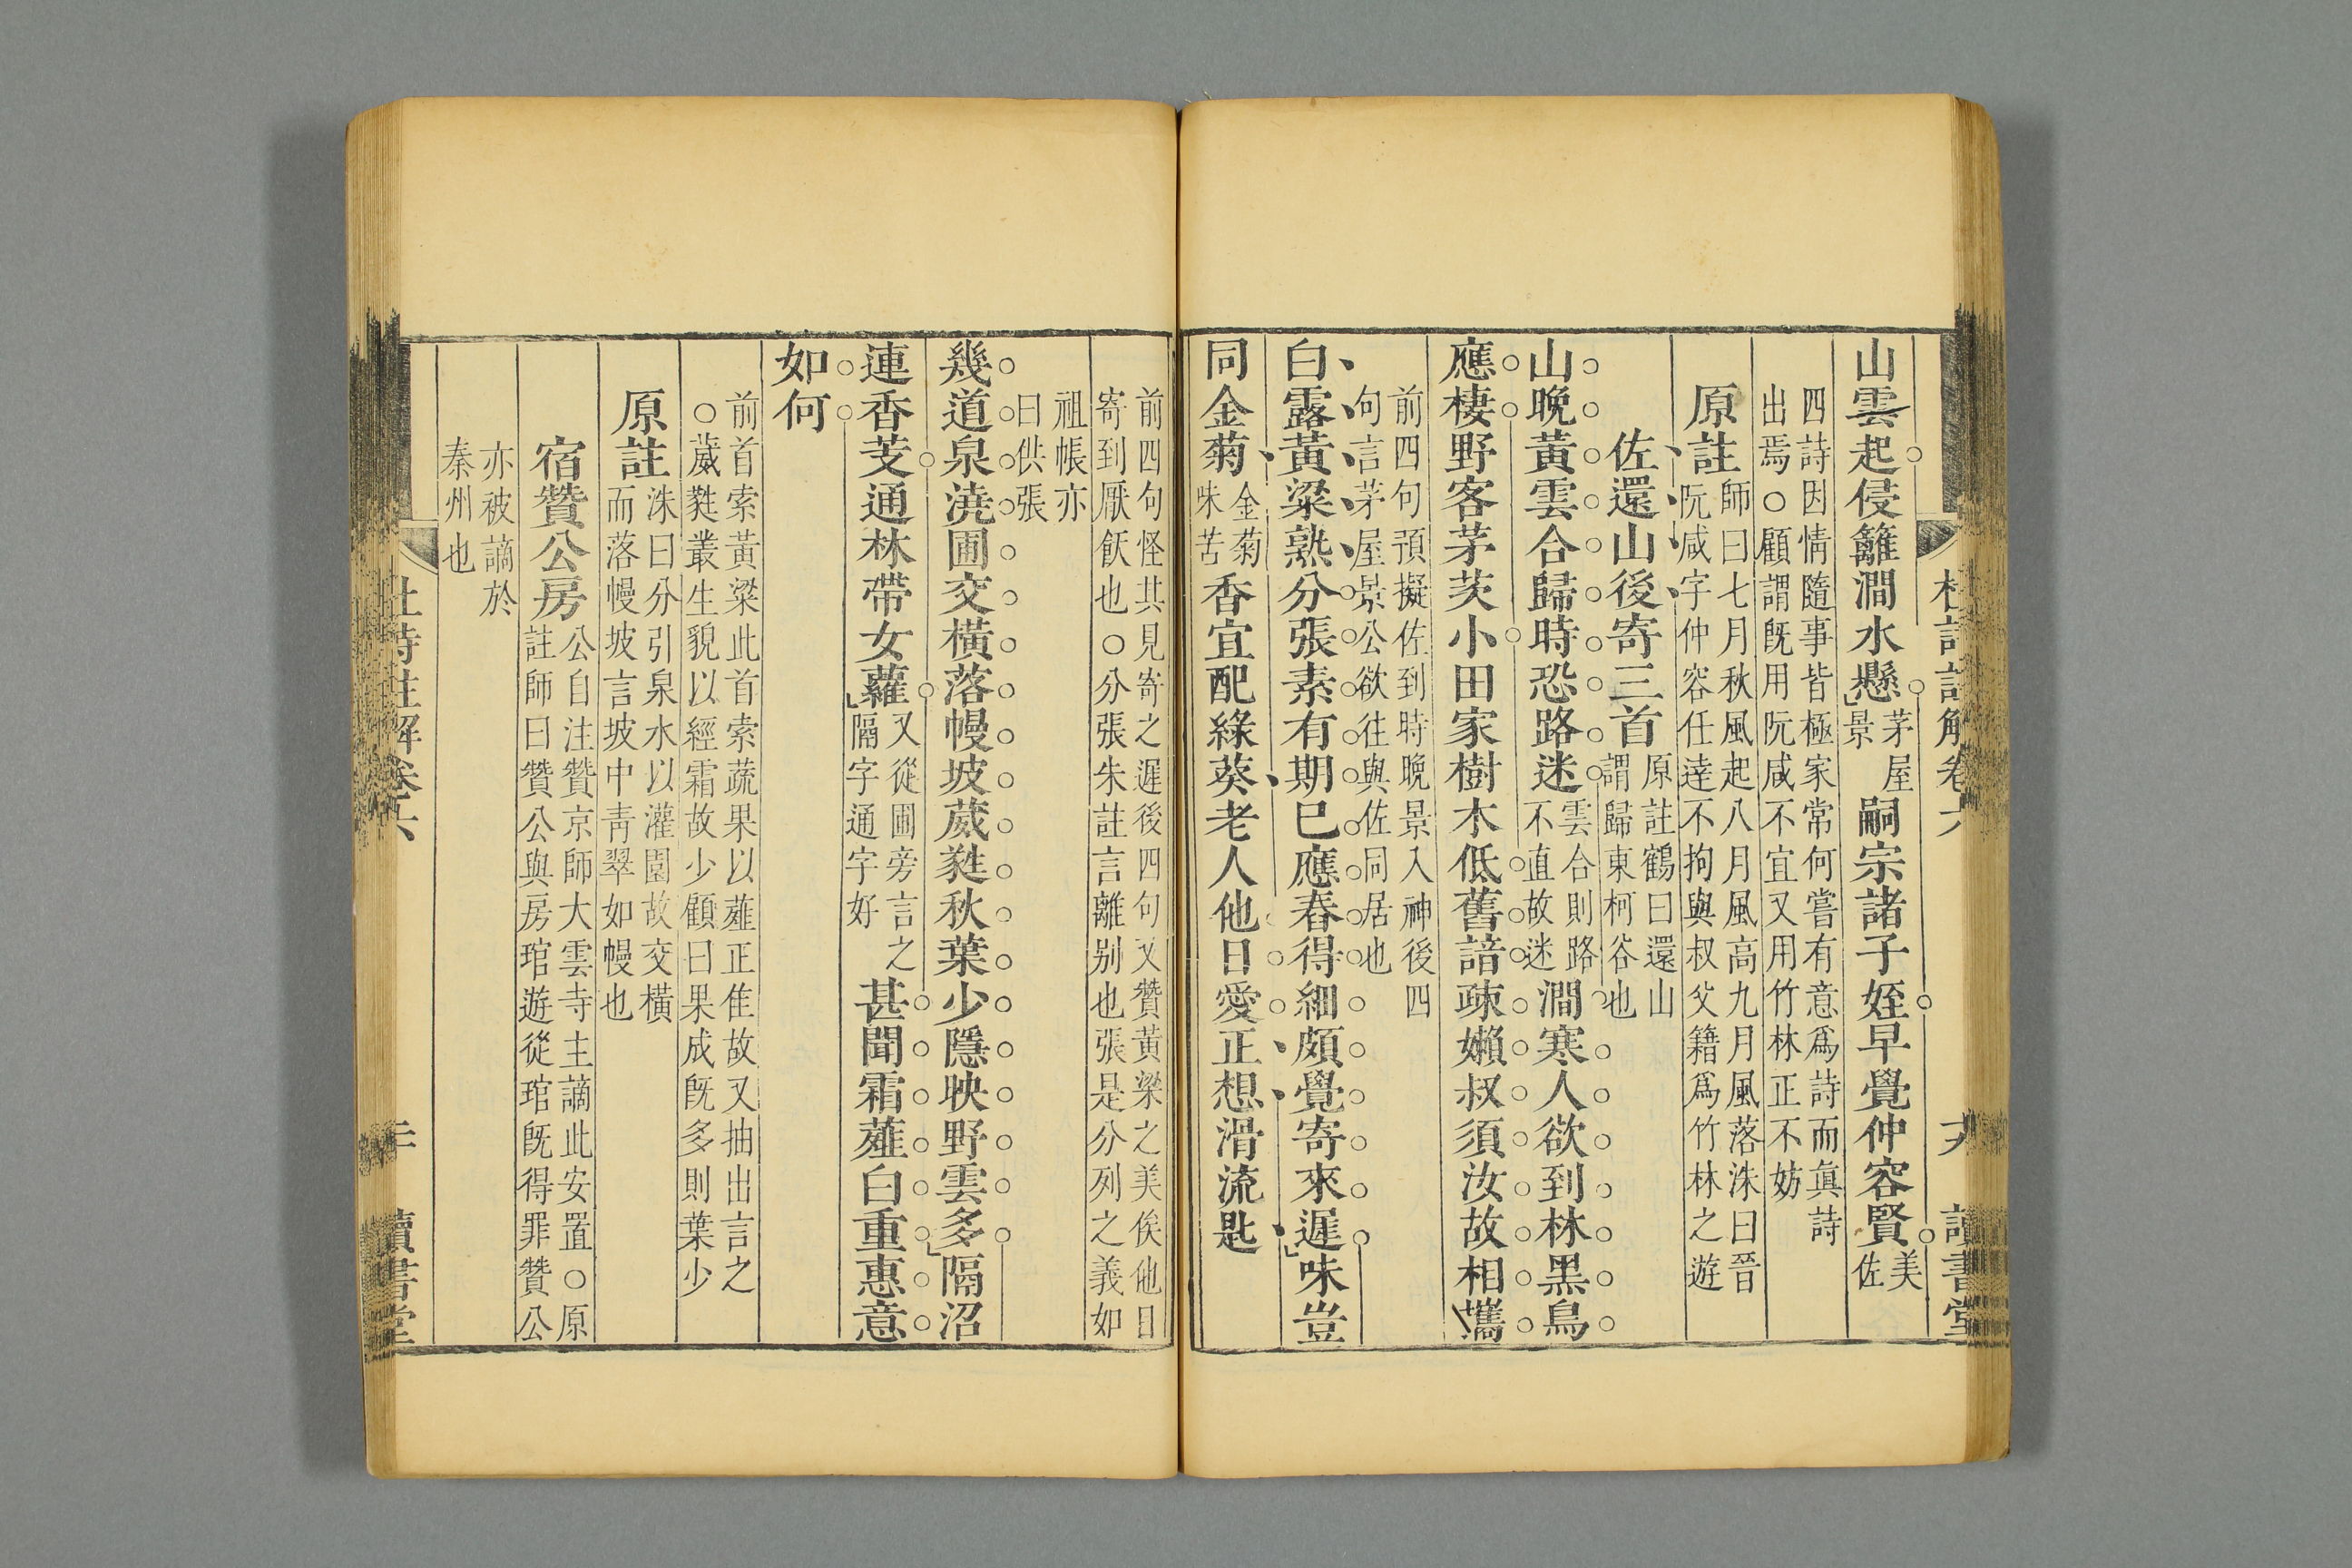 山雲起侵籬澗水懸茅屋景嗣宗諸子姪早覺仲容賢美佐
四詩因情隨事皆極家常何嘗有意爲詩而眞詩
出焉○顧謂旣用阮咸不宜又用竹林正不妨
原註師曰七月秋風起八月風高九月風落洙曰晉
阮咸字仲容任達不拘與叔父籍爲竹林之遊
佐還山後寄三首原註鶴曰還山
謂歸東柯谷也
山晚黃雲合歸時恐路迷雲合則路
不直故迷澗寒人欲到林黑鳥
應棲野客茅茨小田家樹木低舊諳疎嬾叔須汝故相攜
前四句預擬佐到時晚景入神後四
句言茅屋景公欲往與佐同居也
白露黃粱熟分張素有期已應舂得細頗覺寄來遲味豈
同金菊金菊
味苦香宜配綠葵老人他日愛正想滑流匙
杜詩註解卷六 十九 讀書堂
前四句怪其見寄之遲後四句又贊黃粱之美俟他日
寄到厭飫也○分張朱註言離别也張是分列之義如
祖帳亦
曰供張
幾道泉澆圃交橫落幔坡葳蕤秋葉少隱映野雲多隔沼
連香芰通林帶女蘿又從圃旁言之
隔字通字好甚聞霜薤白重惠意
如何
前首索黃粱此首索蔬果以薤正佳故又抽出言之
○葳蕤叢生貌以經霜故少顧曰果成旣多則葉少
原註洙曰分引泉水以灌園故交橫
而落幔坡言坡中靑翠如幔也
宿贊公房公自注贊京師大雲寺主謫此安置○原
註師曰贊公與房琯遊從琯旣得罪贊公
亦被謫於
秦州也
杜詩註解卷六 二十 讀書堂